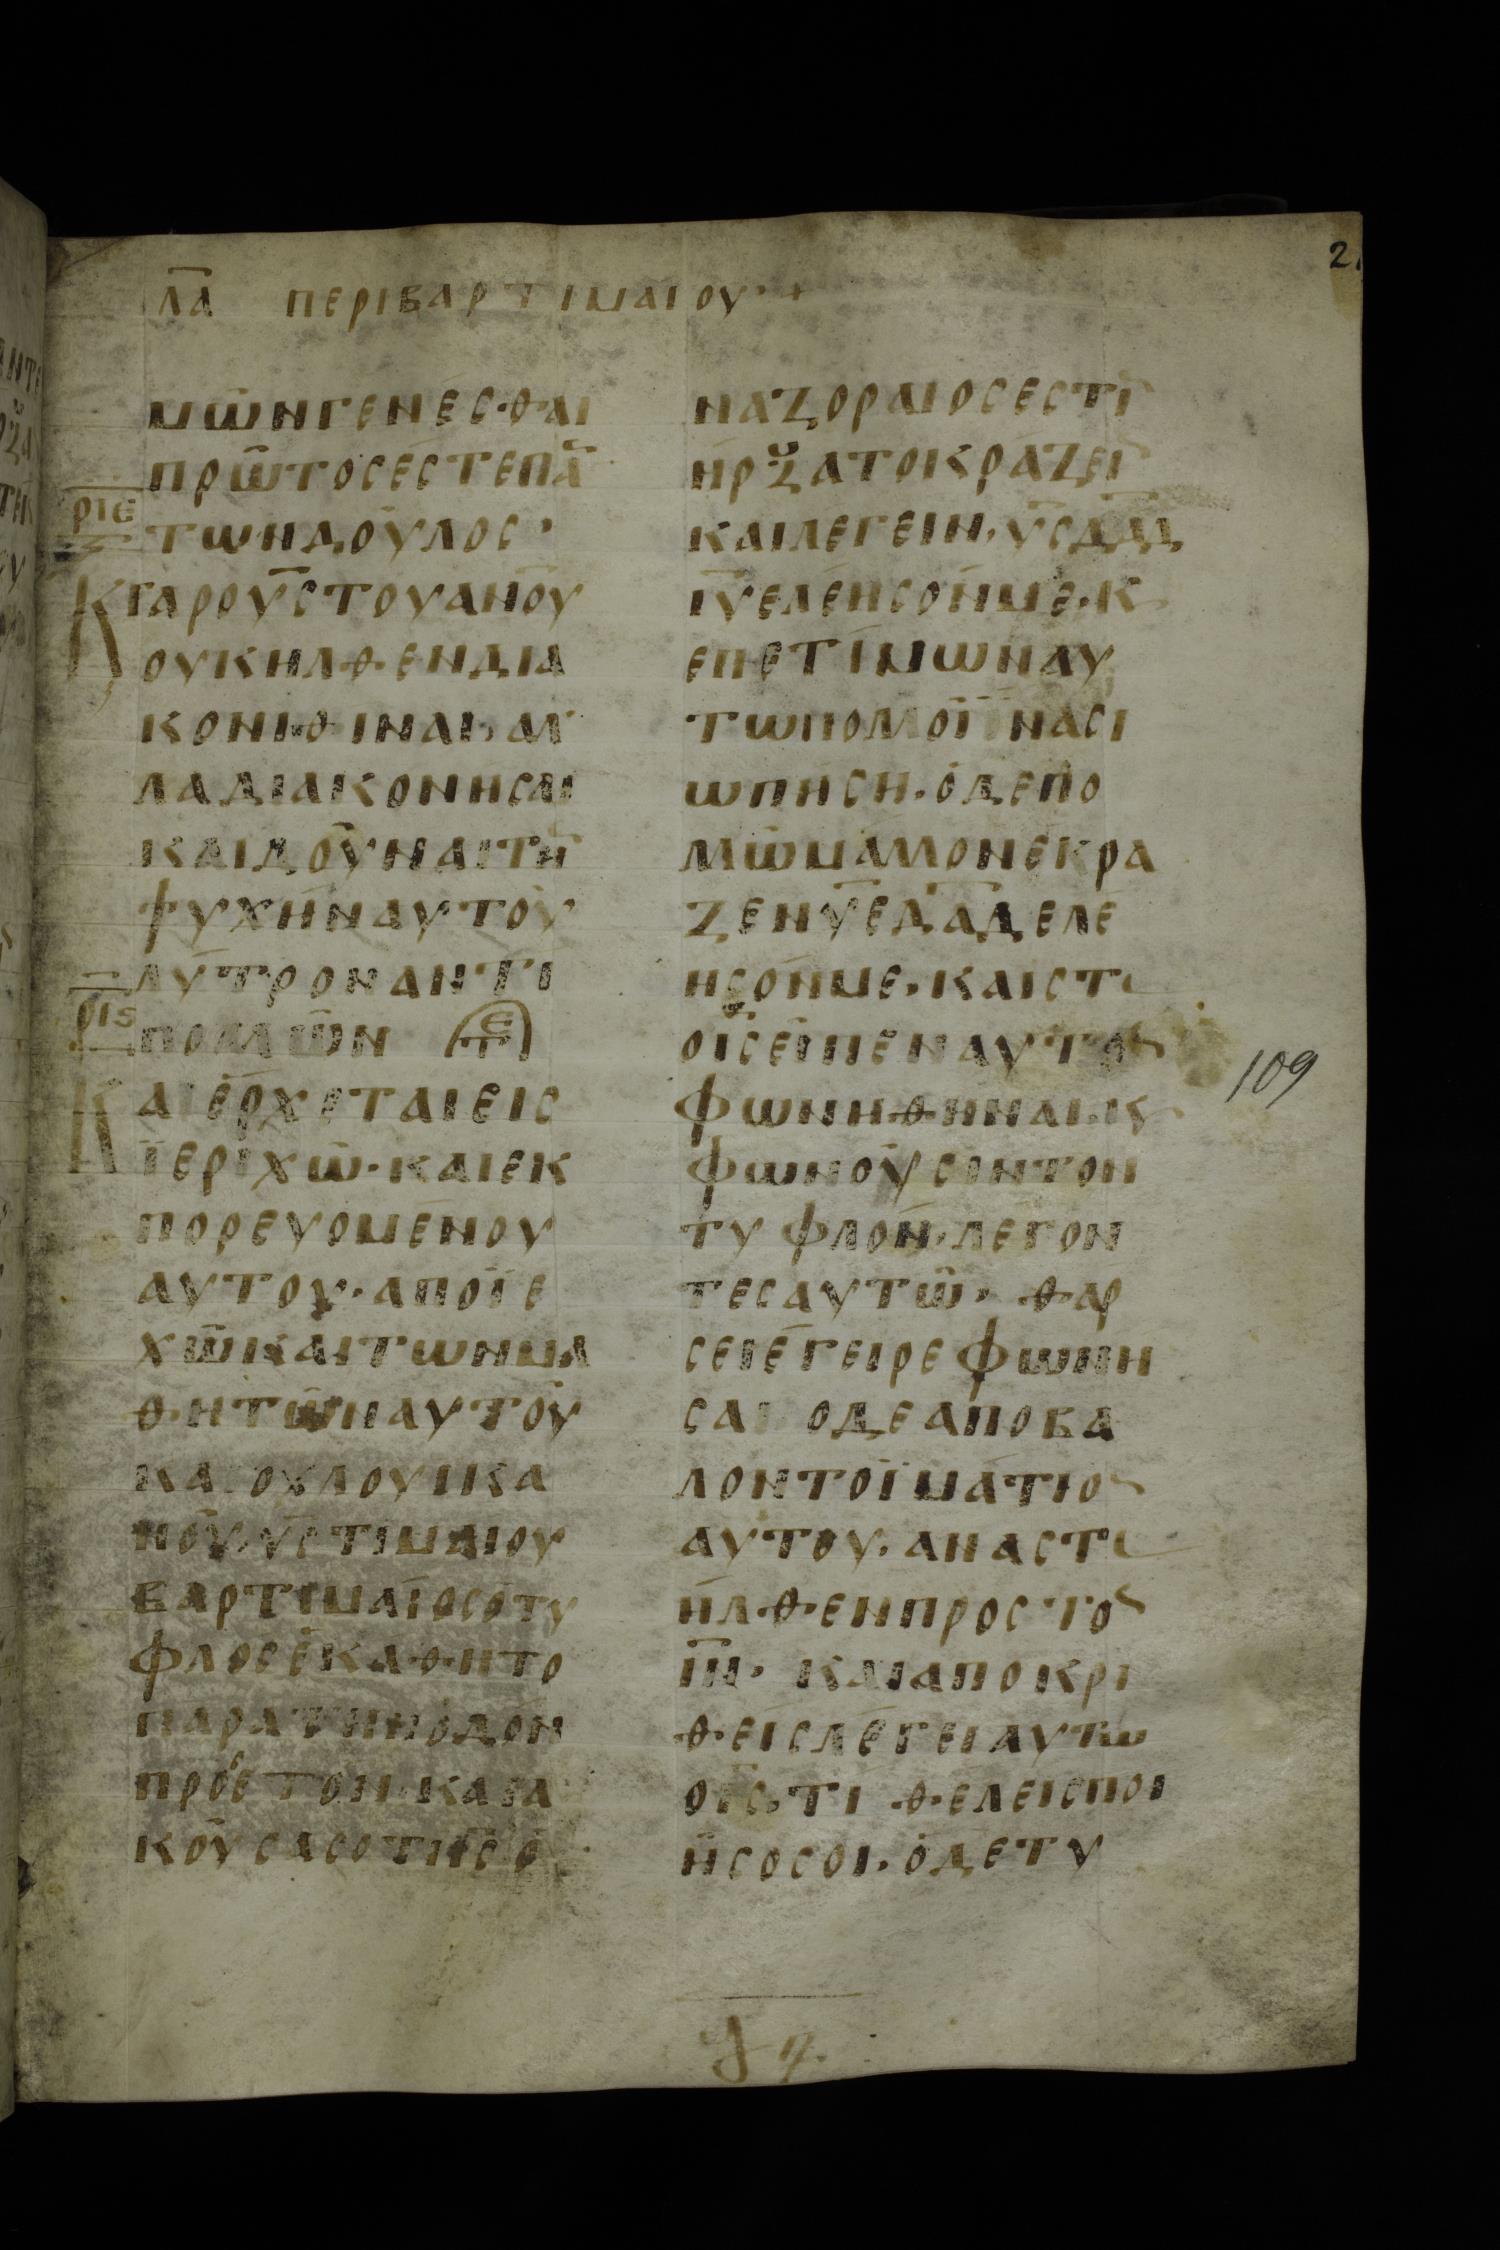 2
λ̅α̅ περιβαρτιμαιου·+
μω̈νγενέσ·θαι
πρω̈τοσεστεπα̅
ριε
τωνδουλοσ·
Κγαρου̅σ̅τουανο̅υ
ουκηλθενδια
κονιθιναι, αλ
λαδιακονησαι
καιδουναιτη̅
ψυχηναυτου
λυτροναντι
ρις
πολλων ε̅
τ
Καιερχεταιεισ
ϊεριχω·καιεκ
πορευομενου
αυτου·αποϊε
χωκαιτωνμα
θητωναυτου
και οχλουικα
νου, υ̅σ̅τιμαιου
βαρτιμαιοσοτυ
φλοσεκαθητο
παρατηνοδον
προσετων·καια
κουσασοτιι̅σ̅ο
ναζοραιοσεστι̅
ηρξατοκραζει̅
καιλεγειν, υ̅σ̅δ̅α̅δ̅
ι̅υ̅ελεησονμε·κ
επετιμωναυ
τωπολλοιϊνασι
ωπηση·οδεπο
λλωμαλλονεκρα
ζενυ̅ε̅δ̅α̅δ̅ελε
ησονμε·καιστα
οι̅σ̅ειπεναυτον
φωνηθηναι·κ
φωνουσιντον
τυφλον·λεγον
τεσαυτω· θαρ
σειεγειρεφωνη
σαι οδεαποβα
λοντοϊματιον
αυτου·αναστα
ηλθενπροστον
ι̅ν̅· καιαποκρι
θεισλεγειαυτω
οι̅σ̅·τι θελεισποι
ησοσοι·οδετυ
109